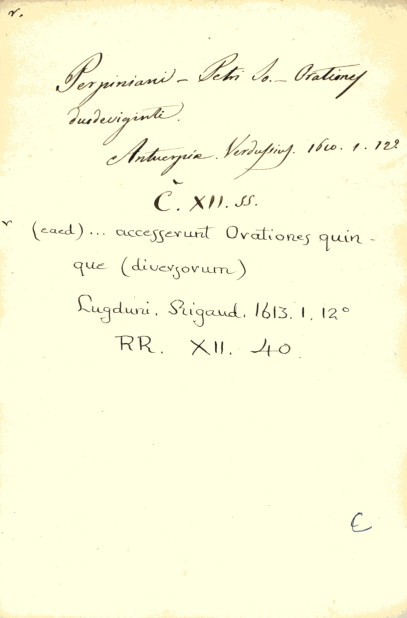 v.
Perpiniani – Petri Jo. – Orationes
duodeviginti.
Antuerpiæ. Verdussius. 1610. 1. 12º
C̆. XII. ss.
v (eaed) ... accesserunt Orationes quin-
que (diversorum)
Lugduni. Rigaud. 1613. 1. 12º
RR. XII. 40.
€